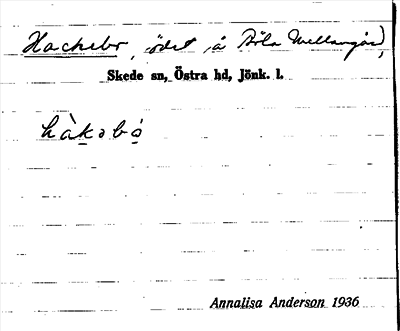 Hackebo, ödet å Böla Mellangård,
Skede sn, Östra hd, Jönk. l.
hàkəbó
Annalisa Anderson 1936